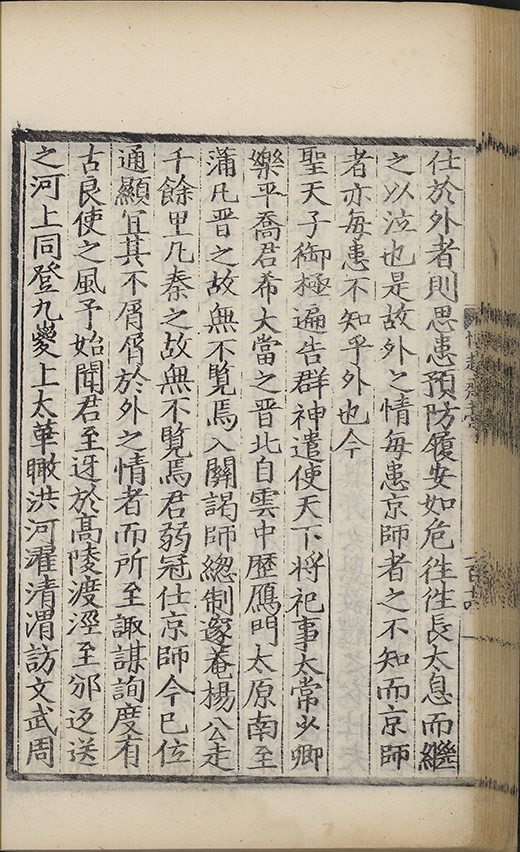 仕於外者則思患預防履安如危徃徃長太息而繼
之以泣也是故外之情每患京師者之不知而京師
者亦每患不知乎外也今
聖天子御極遍告群神遣使天下將祀事太常少卿
樂平喬君希大當之晋北自雲中歷鴈門太原南至
蒲凡晋之故無不覧焉入關謁師緫制邃菴楊公走
千餘里凡秦之故無不覧焉君弱冠仕京師今已位
通顯宜其不屑屑於外之情者而所至諏謀詢度有
古良使之風予始聞君至迓於髙陵渡涇至邠迈送
之河上同登九嵏上太華瞰洪河濯清渭訪文武周